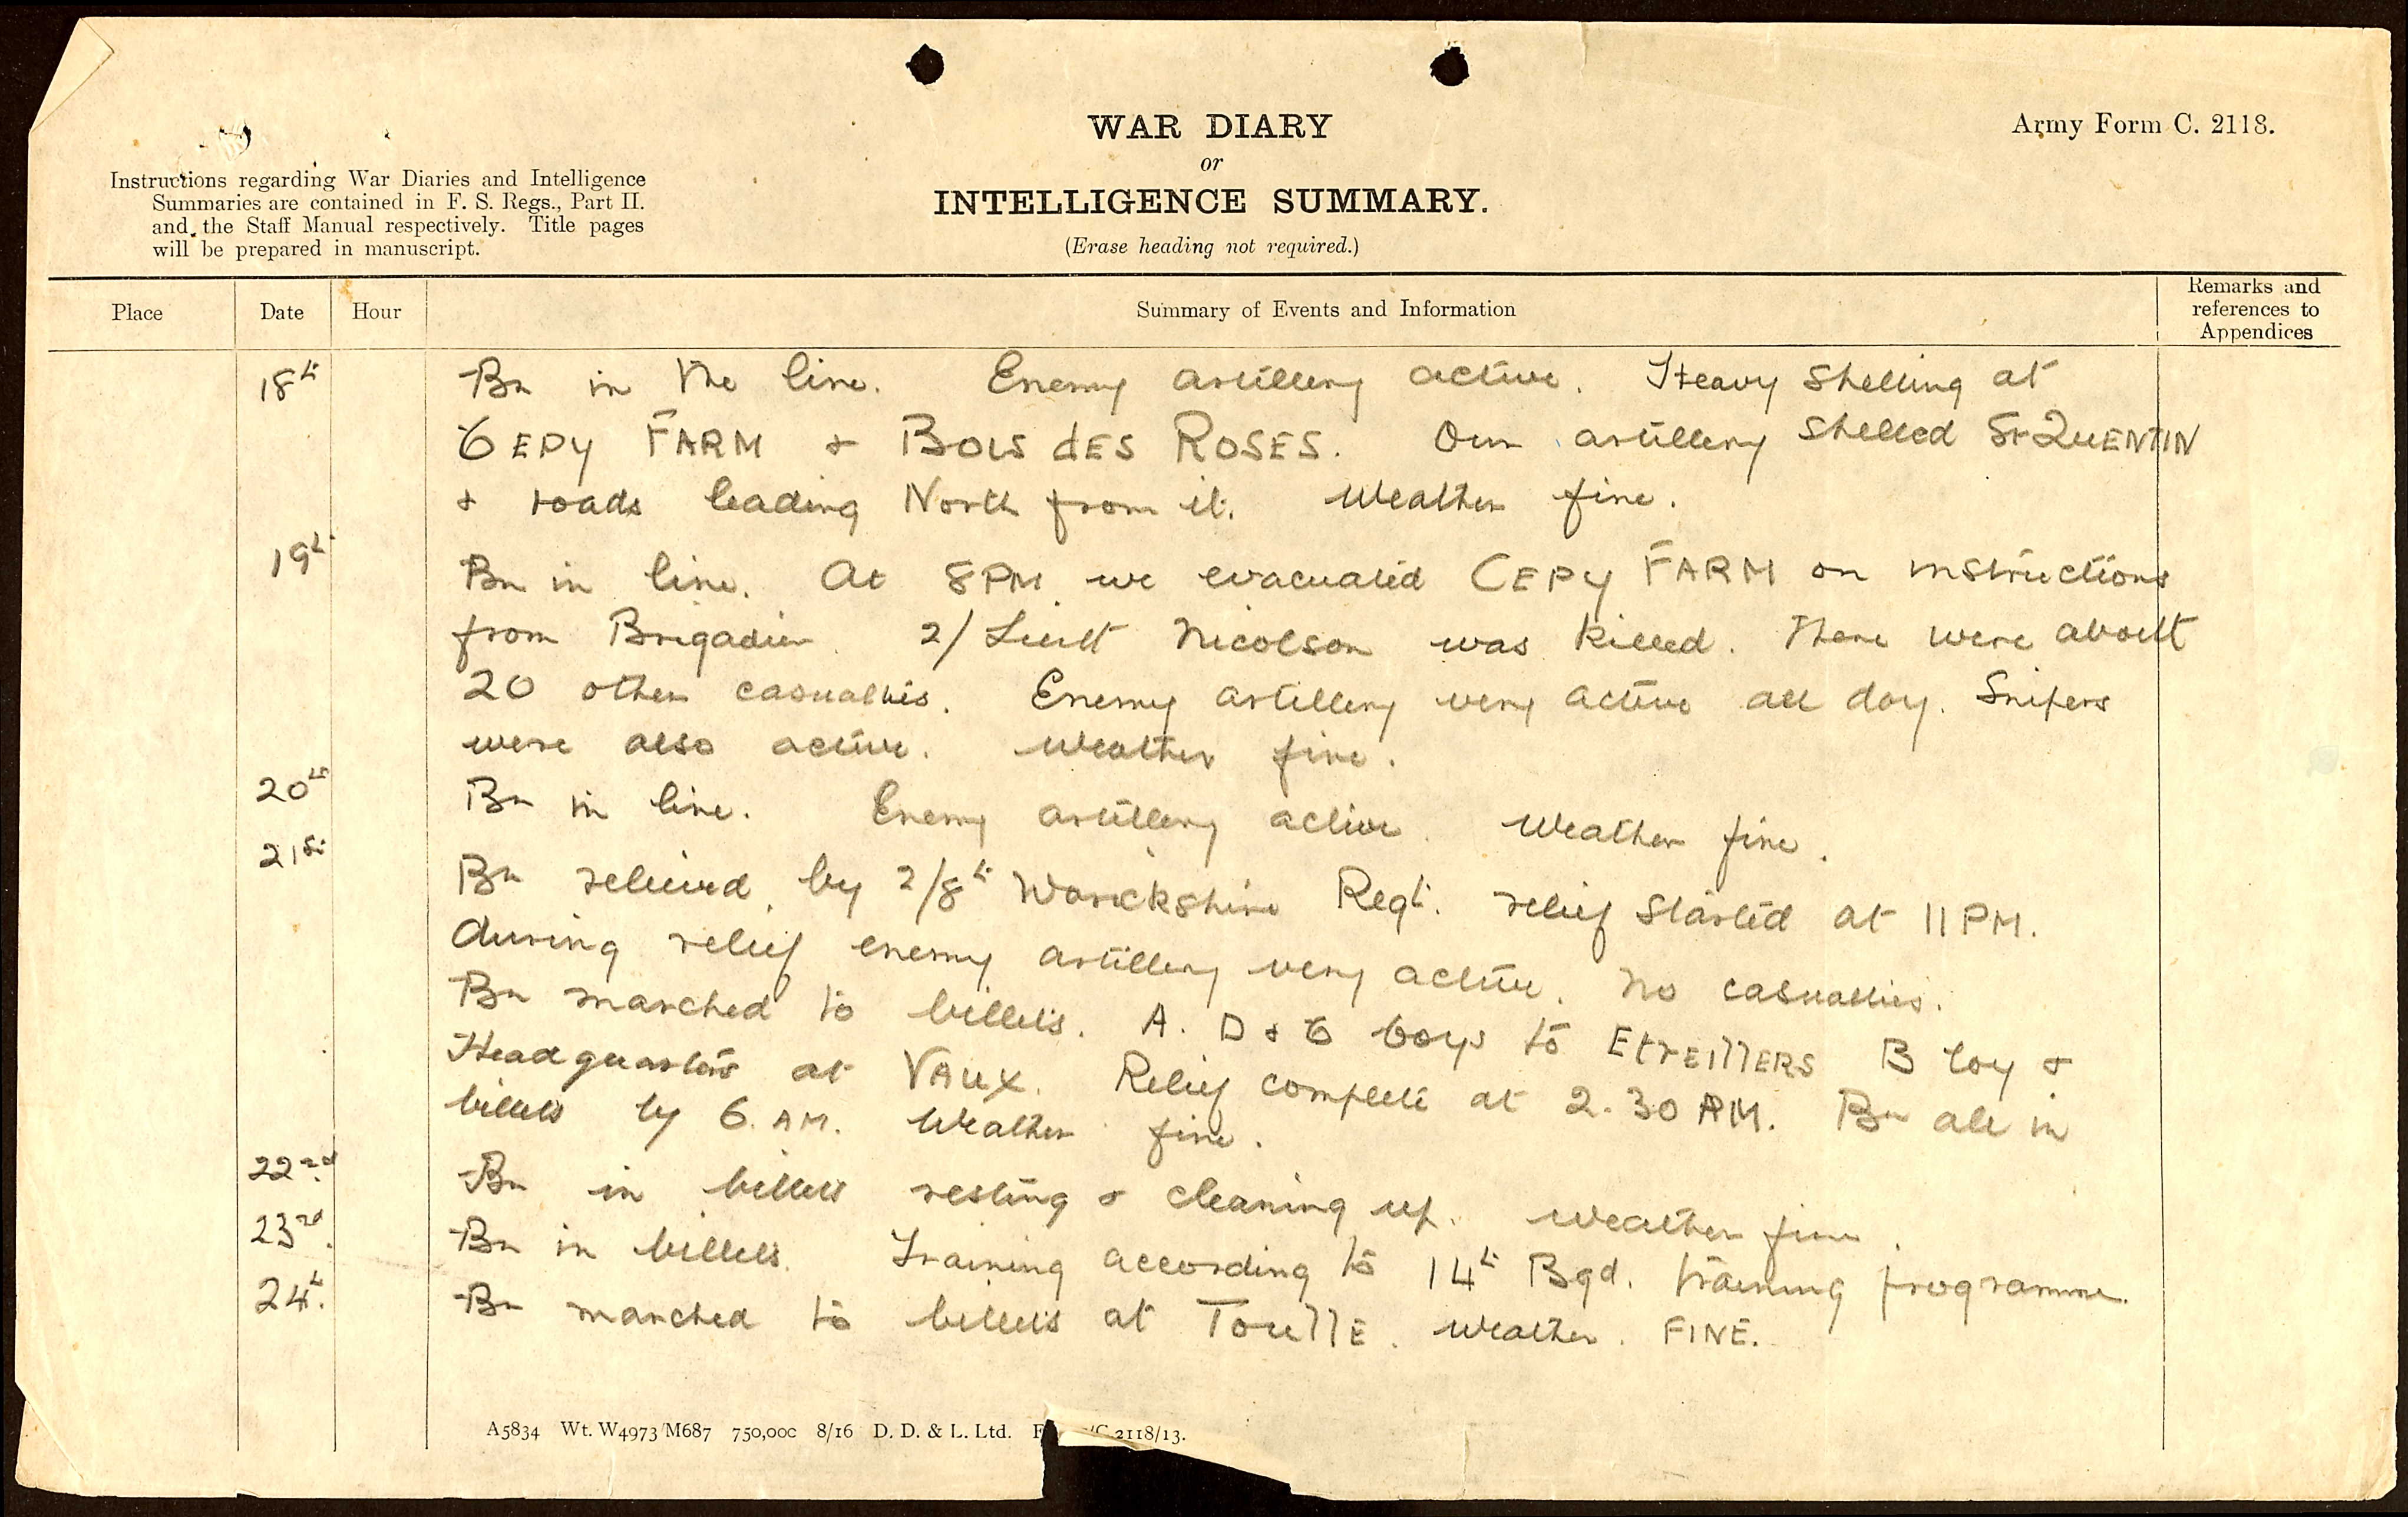 WAR DIARY
or
INTELLIGENCE SUMMARY.
(Erase heading not required.)
Army Form C. 2118.
Instructions regarding War Diaries and Intelligence
Summaries are contained in F. S. Regs., Part II.
and the Staff Manual respectively. Title pages
will be prepared in manuscript.
Place Date Hour Summary of Events and Information Remarks and references to Appendices
18th Bn in the line. Enemy artillery active. Heavy shelling at
CEPY FARM & BOIS dES ROSES. Our artillery shelled St QUENTIN
& roads leading North from it. Weather fine.
19th Bn in line. At 8PM we evacuated CEPY FARM on instructions
from Brigadier. 2/Lieut Nicolson was killed. There were about
20 other casualties. Enemy artillery very active all day. Snipers
were also active. Weather fine.
20th Bn in line. Enemy artillery active. Weather fine.
21st Bn relieved by 2/8th Warickshire Regt. relief started at 11PM.
during relief enemy artillery very active. No casualties.
Bn marched to billets. A. D & C Coys to EtrEillERS B Coy &
Headquarters at VAUX. Relief complete at 2.30 AM. Bn all in
billets by 6.AM. Weather fine.
22nd Bn in billets resting & cleaning up. Weather fine.
23rd. Bn in billets. Training according to 14th Bgd. training programme.
24th. Bn marched to billets at ToullE. Weather. FINE.
A5834 Wt. W4973/M687 750,000 8/16 D. D. & L. Ltd. F /C.2118/13.